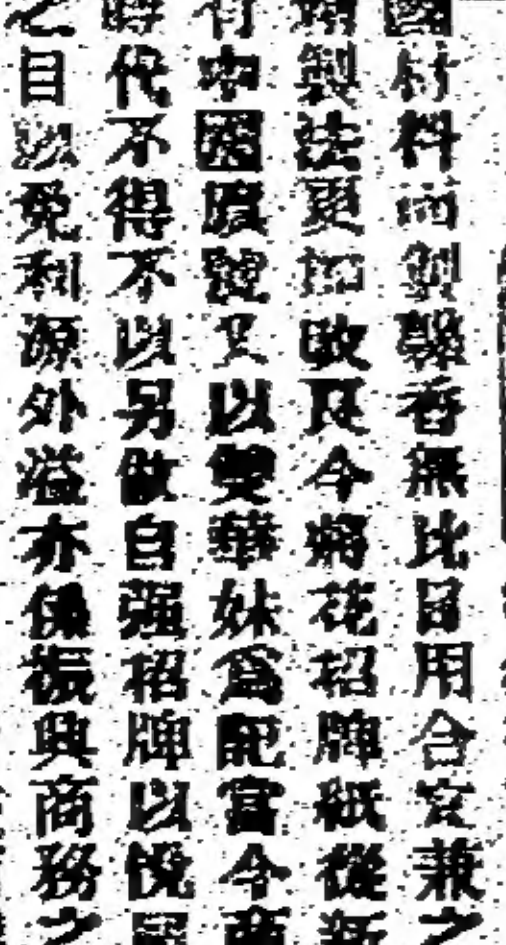 國材料而製馨香無比日用合宜兼之
製法更加改良今將花招牌紙從新
中國原號又以雙華妹為記當今商
時代不得不以另做自强招牌以悅
之目以免利源外溢亦係振興商務之